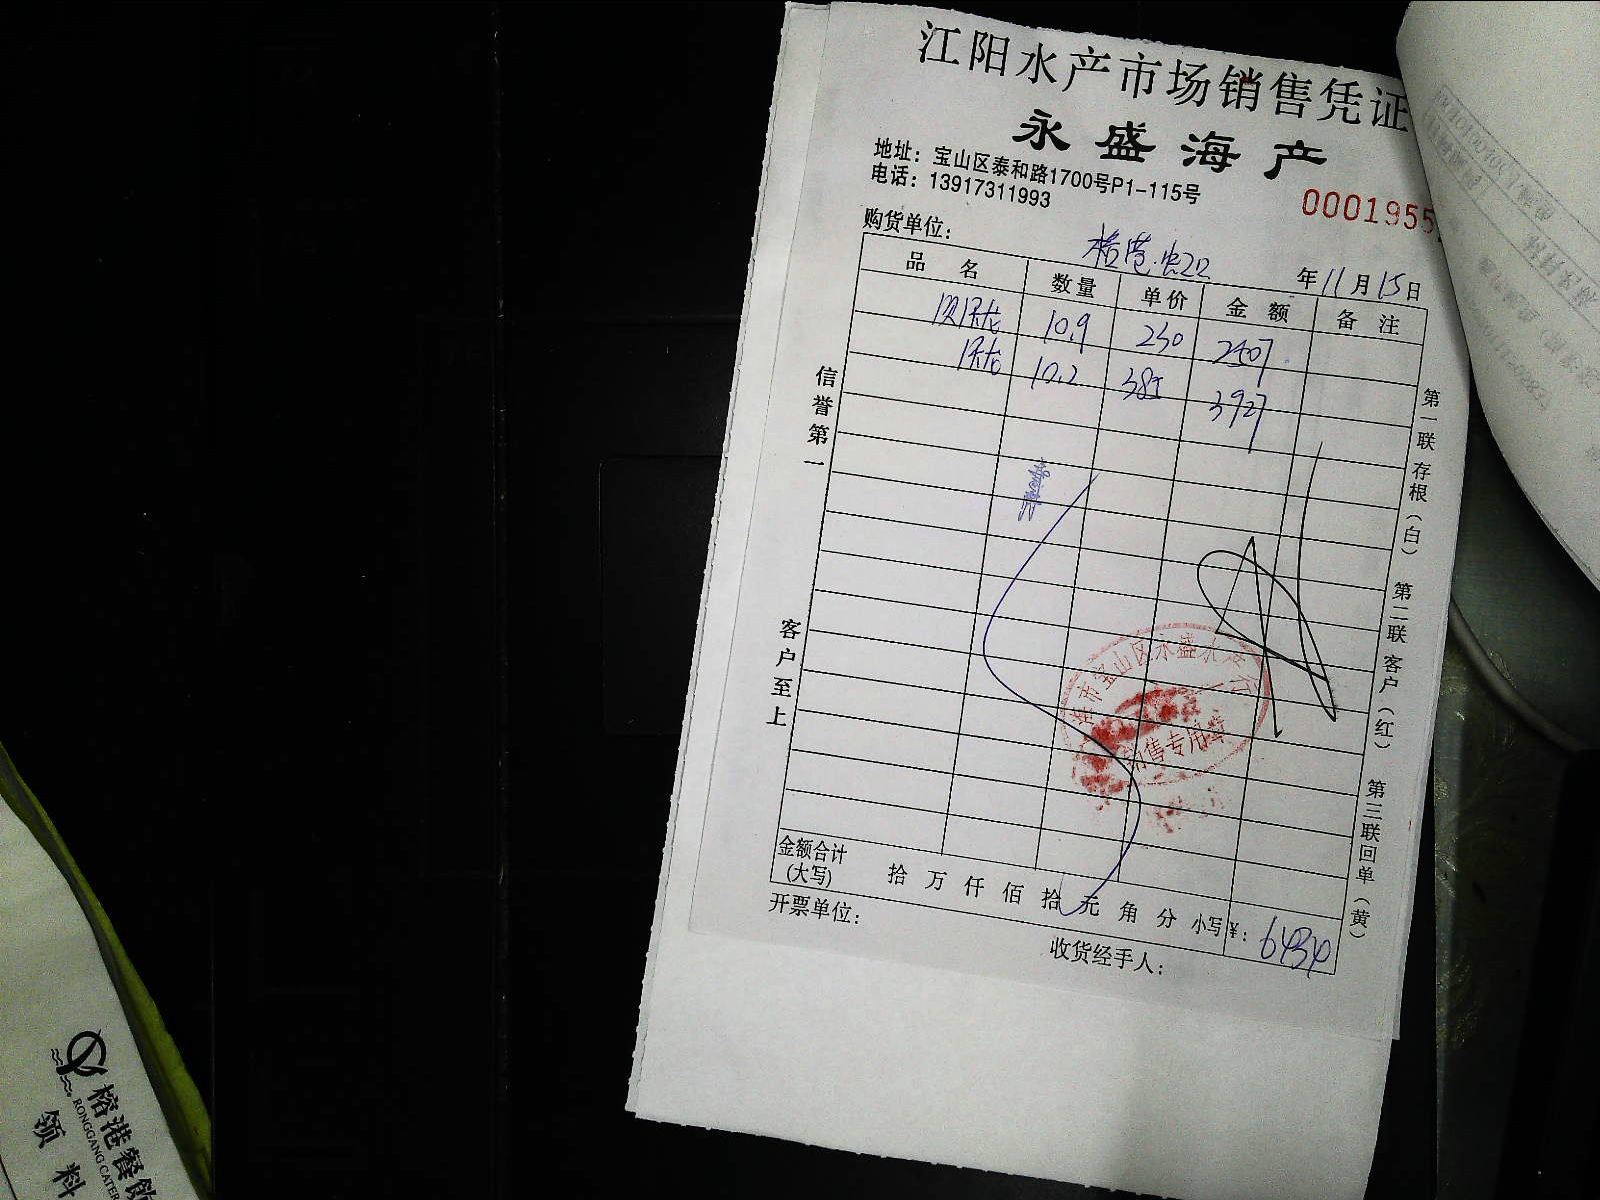 江阳水产市场销售凭证
永盛海产
地址：宝山区泰和路1700号P1-115号
电话：13917311993
0001955
购货单位：
榕港.虹口
年11月15日
品名 数量 单价 金额 备注
10.9 230 2507
10.2 385 3927
信誉第一
客户至上
第一联存根（白） 第二联客户（红） 第三联回单（黄）
市宝山区永盛水产行
销售专用章
金额合计(大写) 拾 万 仟 佰 拾 元 角 分 小写¥： 6434
开票单位：
收货经手人：
榕港餐飲
RONGGANG CATER
领料